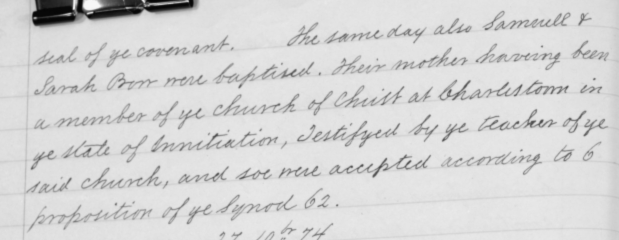 seal of ye covenant. The same day also Samuell &
Sarah Borr were baptised. Their mother haveing been
a member of ye church of Christ at Charlestown in
ye state of Innitiation, Testifyed by ye teacher of ye
said church, and soe were accepted according to 6
proposition of ye Synod 62.
27 10br 74